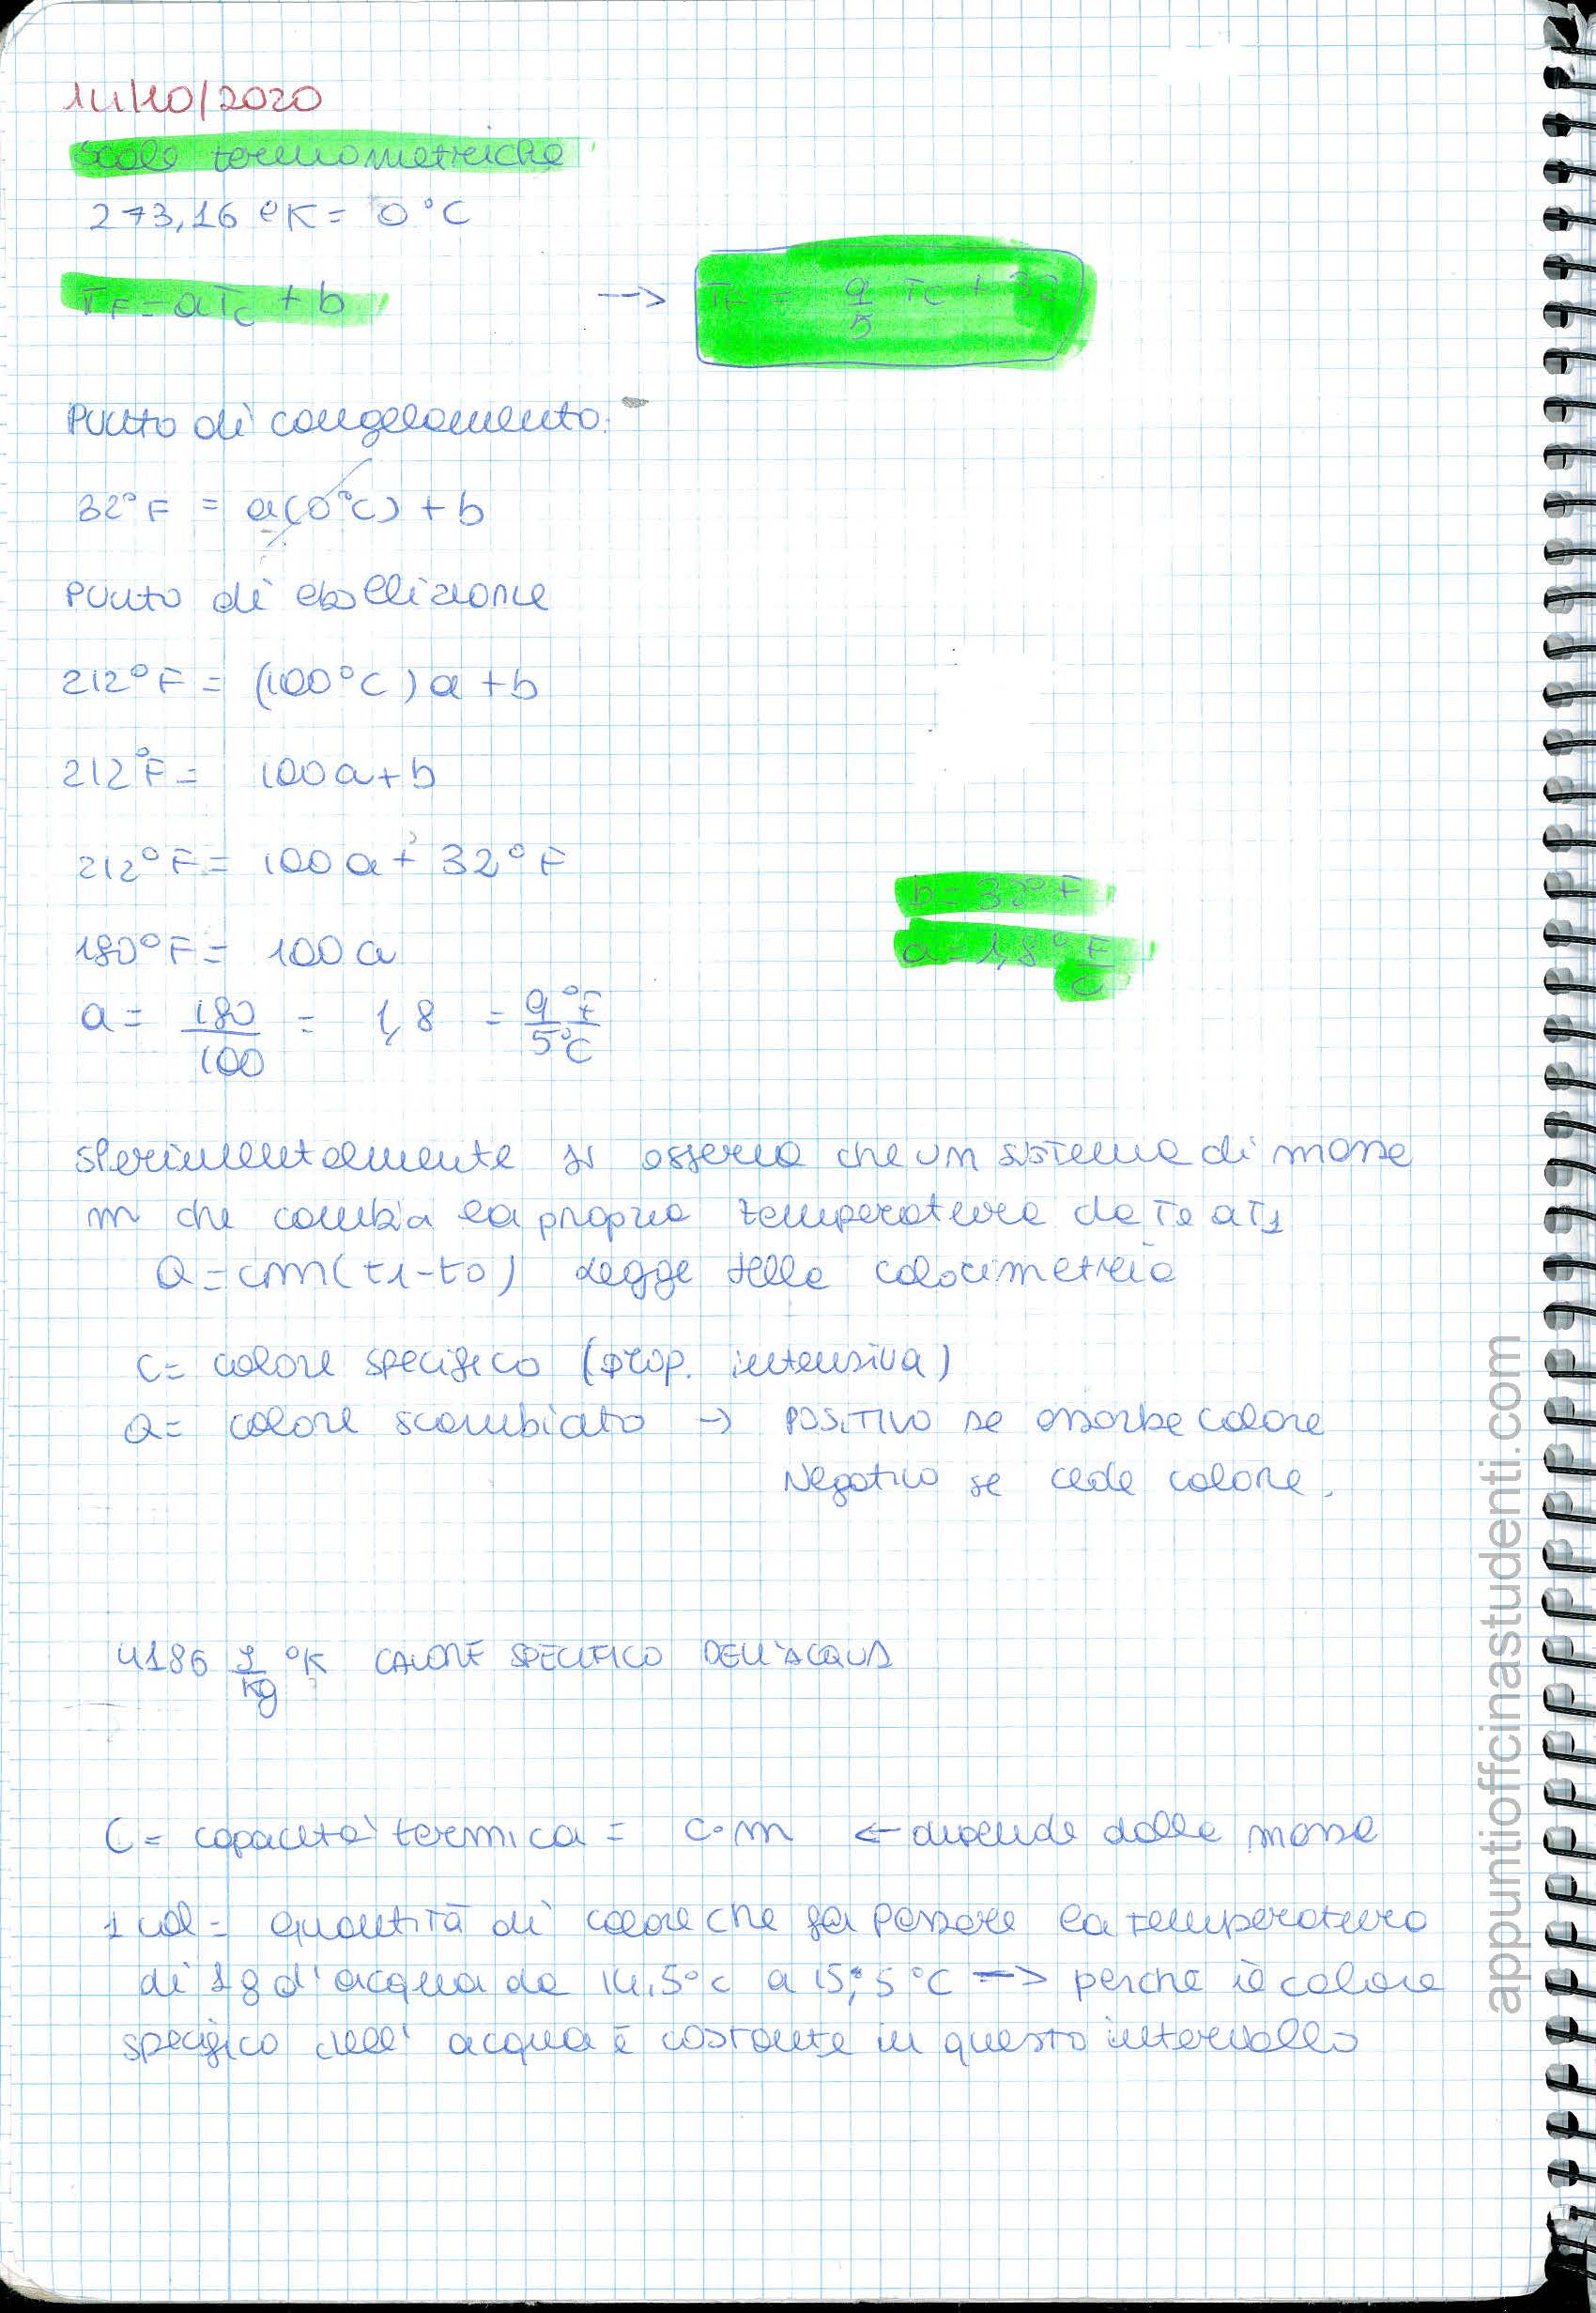 14/10/2020
Scale termometriche
273,16 °K = 0 °C
TF = aTc + b --> TF = 9/5 Tc + 32
Punto di congelamento:
32°F = a(0°C) + b
Punto di ebollizione
212°F = (100°C) a + b
212°F = 100a + b
212°F = 100a + 32°F
b = 32°F
180°F = 100a
a = 1,8 °F/C
a = 180/100 = 1,8 = 9/5 °F/°C
Sperimentalmente si osserva che un sistema di massa
m che cambia la propria temperatura da T0 a T1
Q = cm(t1-t0) Legge della calorimetria
c = calore specifico (prop. intensiva)
Q = calore scambiato -> POSITIVO se assorbe calore
Negativo se cede calore.
4186 J/kg °K CALORE SPECIFICO DELL'ACQUA
C = capacità termica = c·m <- dipende dalla massa
1 cal = quantità di calore che fa passare la temperatura
di 1g d'acqua da 14,5°C a 15,5°C --> perché il calore
specifico dell'acqua è costante in questo intervallo
appuntioffcinastudenti.com